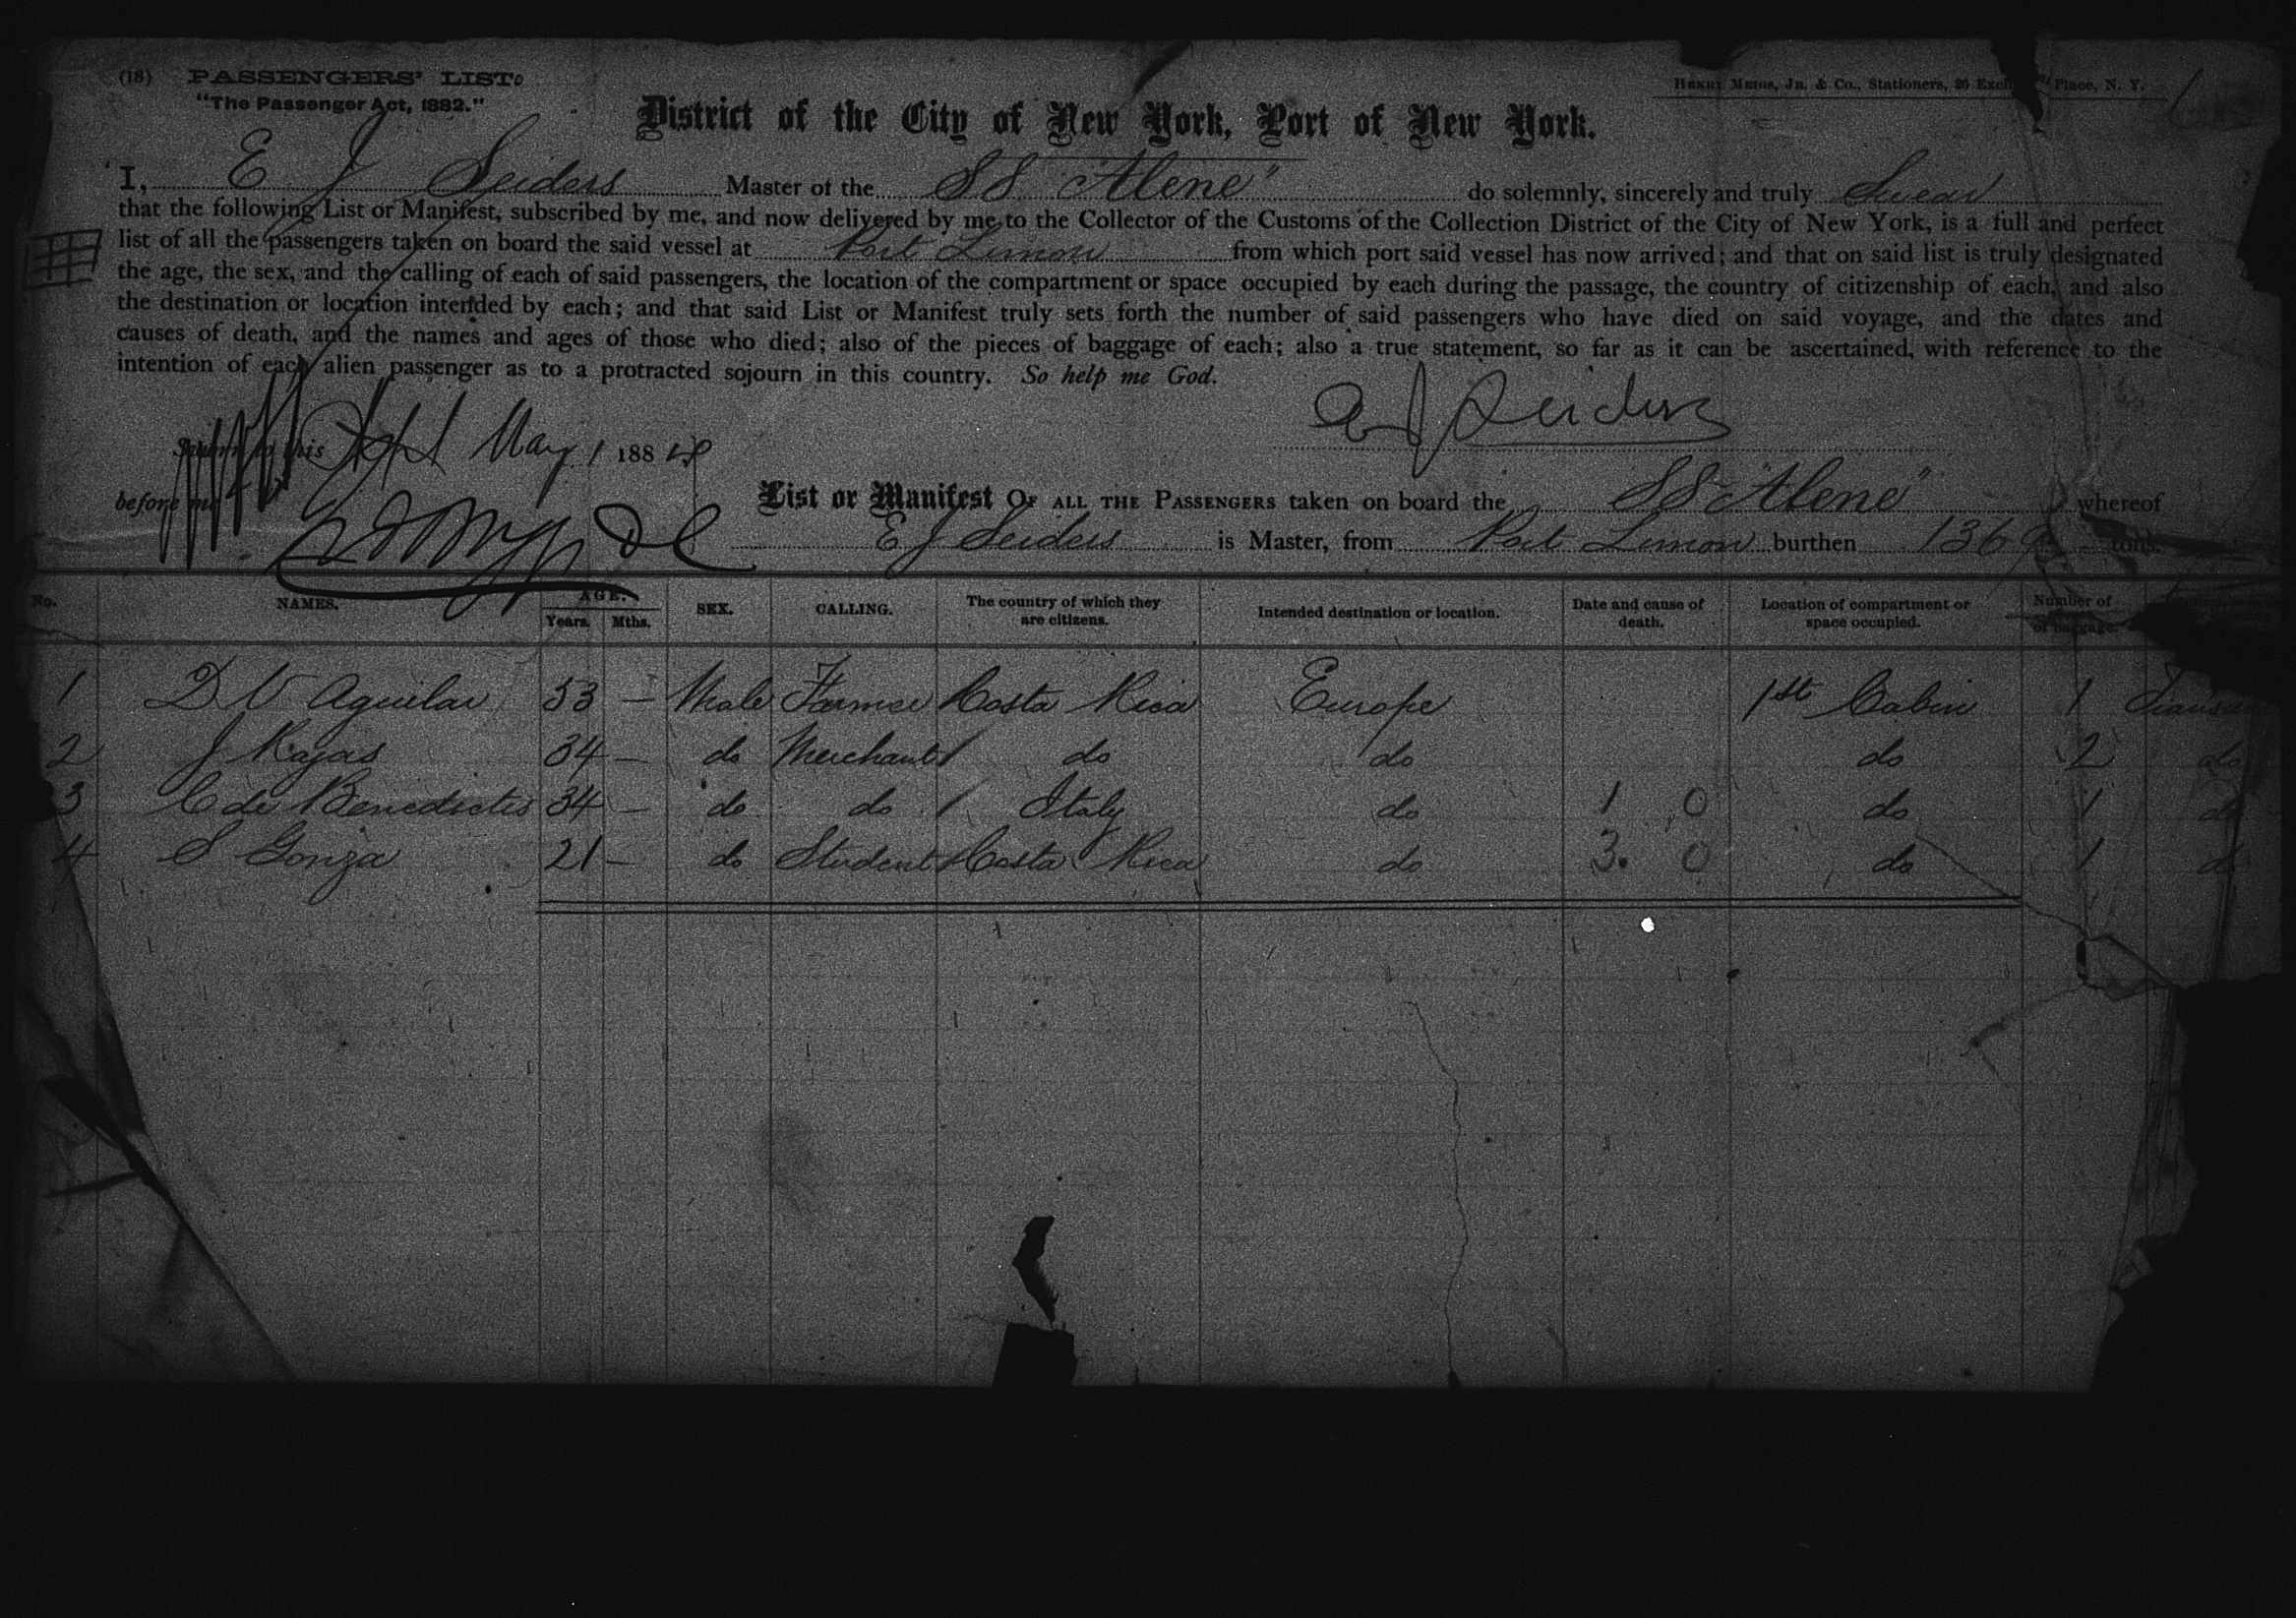 (18) PASSENGERS' LIST.
"The Passenger Act, 1882."
HENRY MEIGS, JR. & CO., Stationers, 26 Place, N. Y.
District of the City of New York, Port of New York.
I, E J Seiders Master of the SS "Alene" do solemnly, sincerely and truly Swear
that the following List or Manifest, subscribed by me, and now delivered by me to the Collector of the Customs of the Collection District of the City of New York, is a full and perfect
list of all the passengers taken on board the said vessel at Port Limon from which port said vessel has now arrived; and that on said list is truly designated
the age, the sex, and the calling of each of said passengers, the location of the compartment or space occupied by each during the passage, the country of citizenship of each, and also
the destination or location intended by each; and that said List or Manifest truly sets forth the number of said passengers who have died on said voyage, and the dates and
causes of death, and the names and ages of those who died; also of the pieces of baggage of each; also a true statement, so far as it can be ascertained, with reference to the
intention of each alien passenger as to a protracted sojourn in this country. So help me God.
E J Seiders
Sworn to this May 1 188
before me
List or Manifest OF ALL THE PASSENGERS taken on board the SS "Alene" whereof
E J Seiders is Master, from Port Limon burthen 1369 tons.
No. NAMES. AGE. Years. Mths. SEX. CALLING. The country of which they are citizens. Intended destination or location. Date and cause of death. Location of compartment or space occupied. Number of of baggage.
1 D V Aguilar 53 — Male Farmer Costa Rica Europe 1st Cabin 1
2 J Rojas 34 — do Merchant do do do 2 do
3 C de Benedictis 34 — do do Italy do 1 0 do 1 do
4 S Gonza 21 — do Student Costa Rica do 3 0 do 1 do